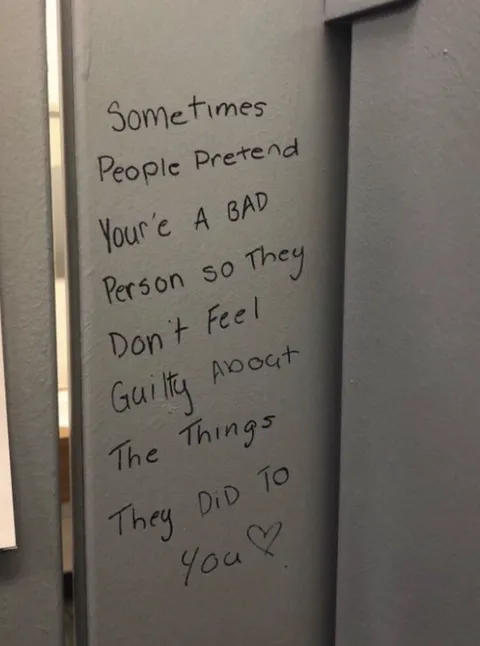 Sometimes
People Pretend
Your'e A BAD
Person so They
Don't Feel
Guilty About
The Things
They DiD To
You♡